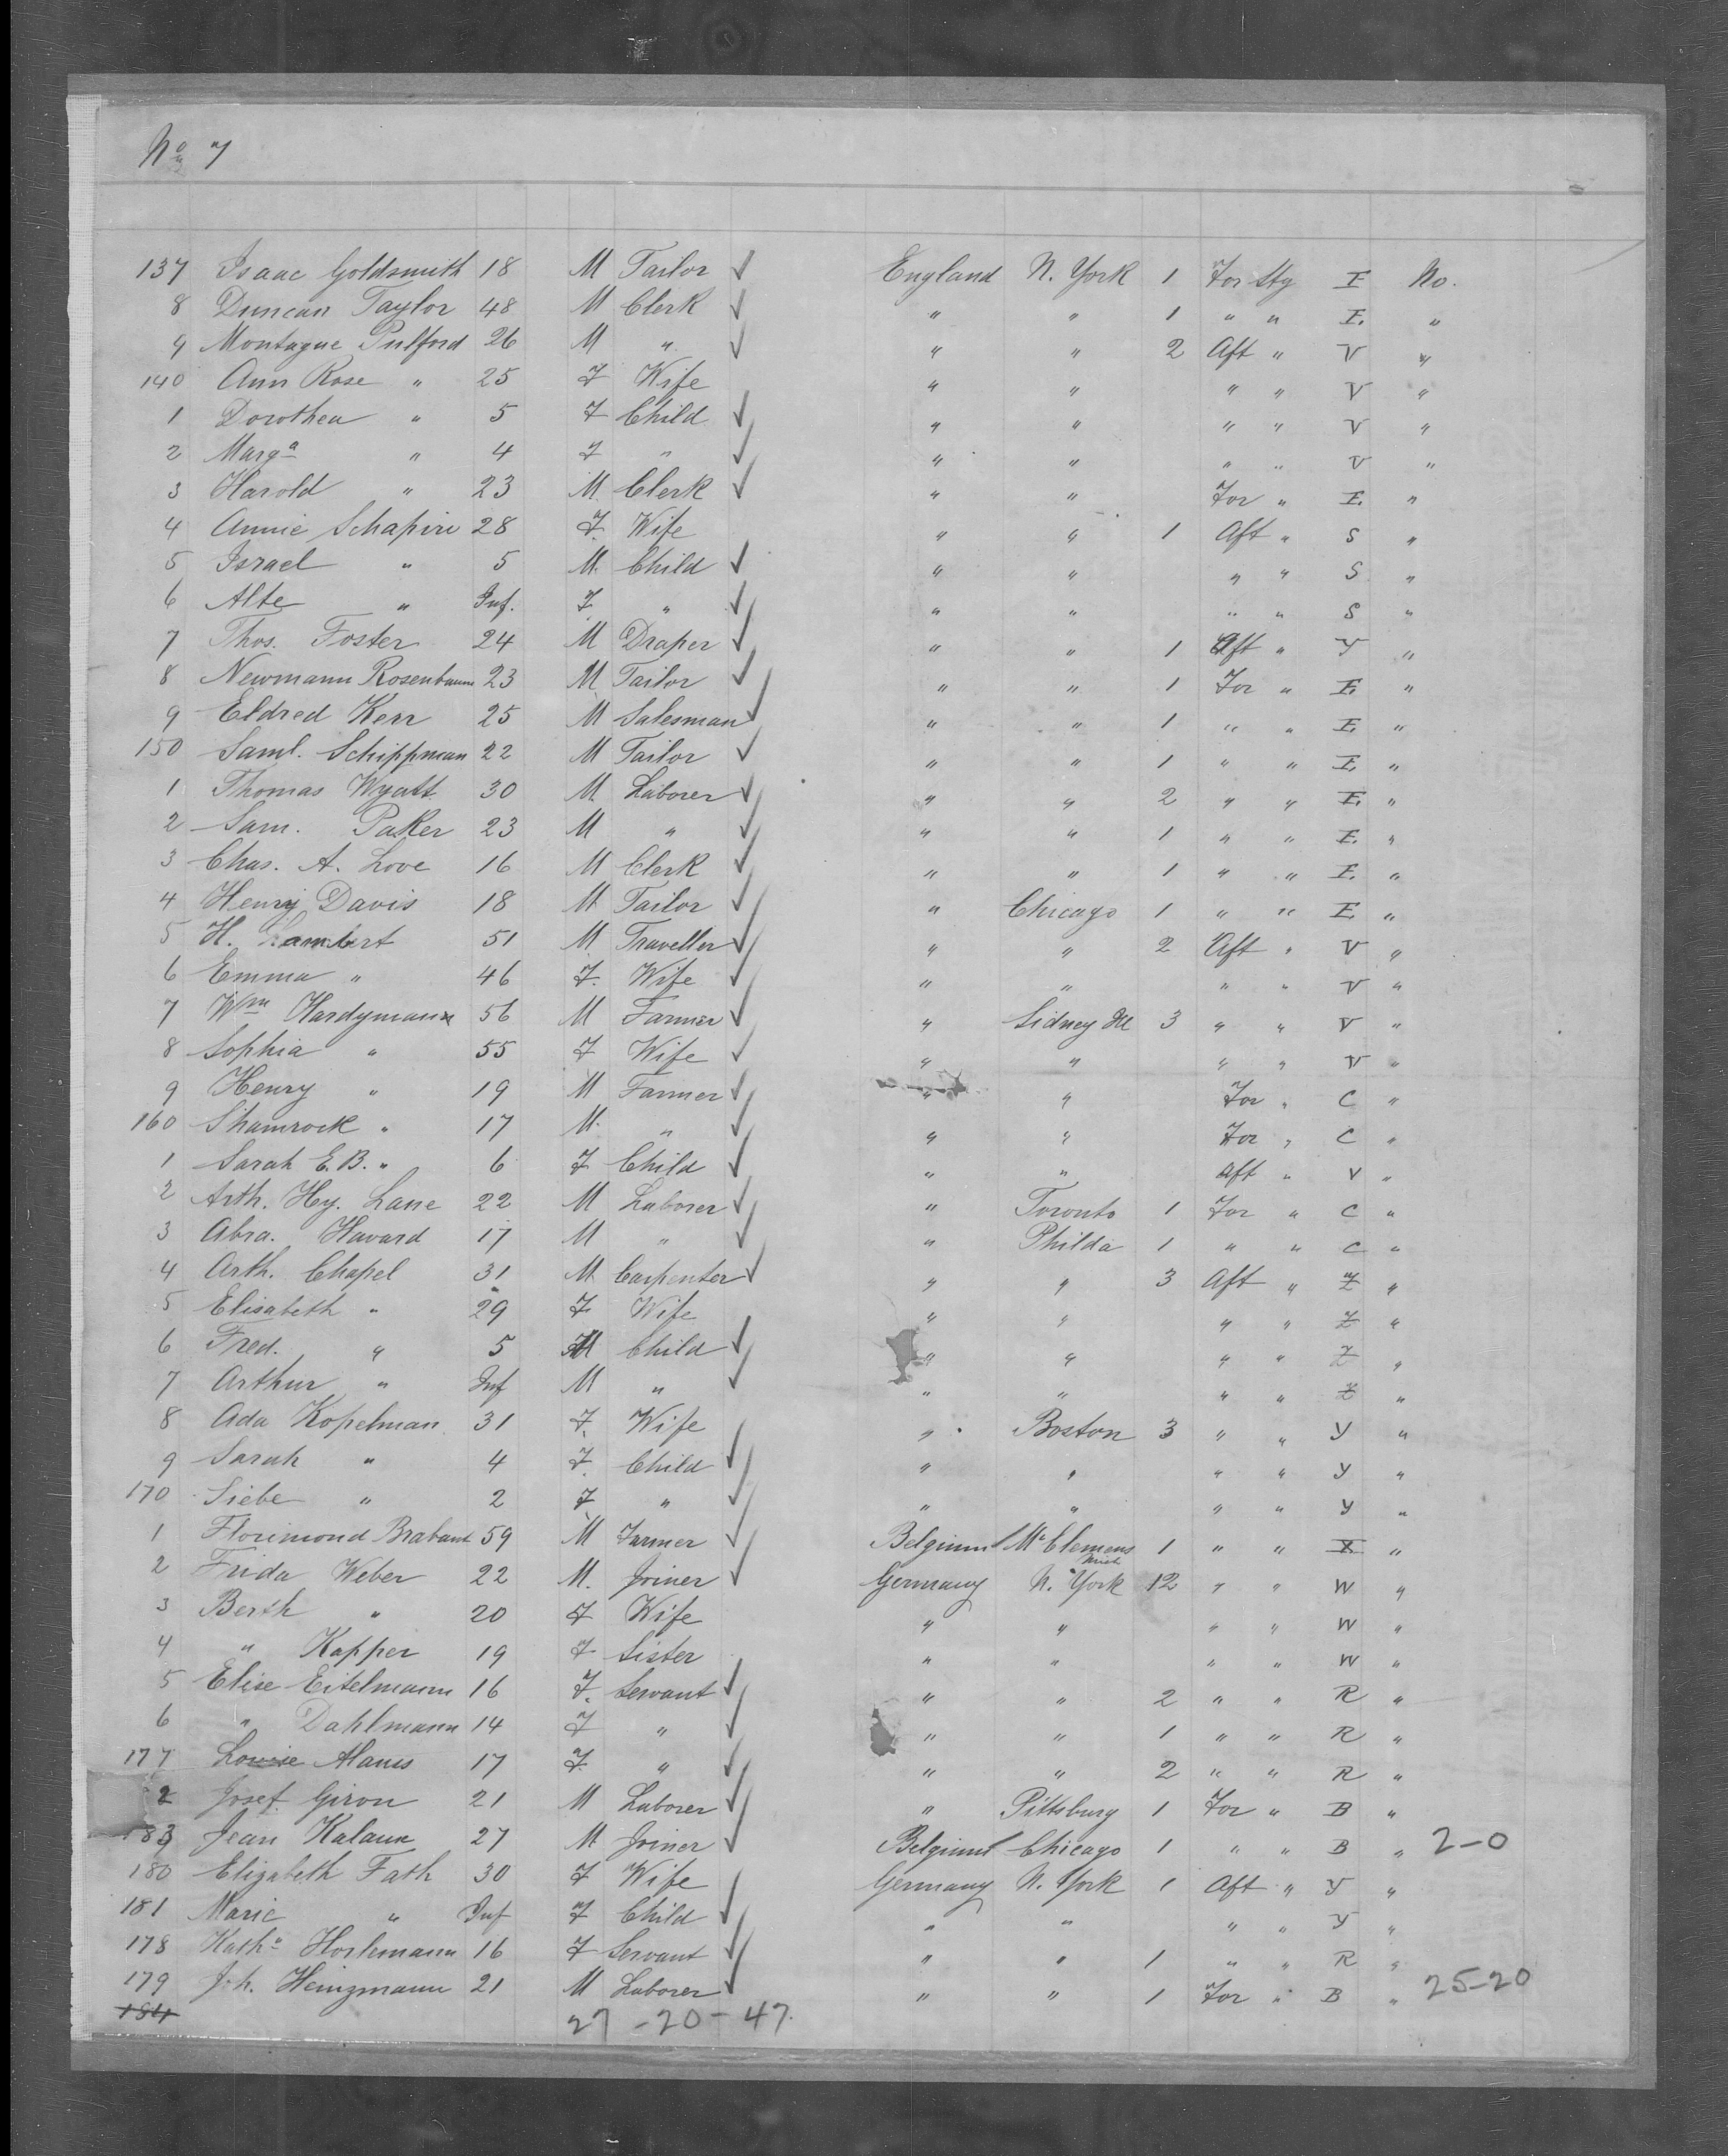 No 7
137 Isaac Goldsmith 18 M Tailor ✓ England N. York 1 For Stg E No.
8 Duncan Taylor 48 M Clerk ✓ " " 1 " " E. "
9 Montague Pulford 26 M " ✓ " " 2 Aft " V "
140 Ann Rose " 25 F Wife " " " " V "
1 Dorothea " 5 F Child ✓ " " " " V "
2 Marga " 4 F " ✓ " " " " V "
3 Harold " 23 M Clerk ✓ " " For " E. "
4 Annie Schapiri 28 F. Wife " " 1 Aft " S "
5 Israel " 5 M. Child ✓ " " " " S "
6 Alte " Inf. F " ✓ " " " " S "
7 Thos. Foster 24 M Draper ✓ " " 1 Aft " Y "
8 Newmann Rosenbaum 23 M Tailor ✓ " " 1 For " E. "
9 Eldred Kerr 25 M Salesman ✓ " " 1 " " E. "
150 Saml. Schippman 22 M Tailor ✓ " " 1 " " E. "
1 Thomas Wyatt 30 M Laborer ✓ " " 2 " " E. "
2 Sam. Paker 23 M " ✓ " " 1 " " E. "
3 Chas. A. Love 16 M Clerk ✓ " " 1 " " E. "
4 Henry Davis 18 M Tailor ✓ " Chicago 1 " " E "
5 H. Lambert 51 M Traveller ✓ " " 2 Aft " V "
6 Emma " 46 F. Wife ✓ " " " " V "
7 Wm Hardymann 56 M Farmer ✓ " Sidney Ill 3 " " V "
8 Sophia " 55 F Wife ✓ " " " " V "
9 Henry " 19 M Farmer ✓ " " For " C "
160 Shamrock " 17 M. " ✓ " " For " C "
1 Sarah E.B. " 6 F Child ✓ " " Aft " V "
2 Arth. Hy. Lane 22 M Laborer ✓ " Toronto 1 For " C "
3 Abra. Havard 17 M " ✓ " Philda 1 " " C "
4 Arth. Chapel 31 M Carpenter ✓ " " 3 Aft " Z "
5 Elisabeth " 29 F Wife " " " " Z "
6 Fred. " 5 M Child ✓ " " " " Z "
7 Arthur " Inf M " ✓ " " " " Z "
8 Ada Kopelman 31 F. Wife " Boston 3 " " Y "
9 Sarah " 4 F. Child ✓ " " " " Y "
170 Siebe " 2 F " ✓ " " " " Y "
1 Florimond Brabant 59 M Farmer ✓ Belgium Mt Clemens Mich 1 " " X "
2 Frida Weber 22 M. Joiner ✓ Germany N. York 12 " " W "
3 Berth " 20 F Wife " " " " W "
4 " Kapper 19 F Sister " " " " W "
5 Elise Eitelmann 16 F. Servant ✓ " " 2 " " R "
6 " Dahlmann 14 F " ✓ " " 1 " " R "
177 Louise 17 F " ✓ " " 2 " " R "
2 Josef Giron 21 M Laborer ✓ " Pittsburg 1 For " B "
183 Jean Kalaun 27 M Joiner ✓ Belgium Chicago 1 " " B " 2-0
180 Elizabeth Fath 30 F Wife Germany N. York 1 Aft " Y "
181 Marie " Inf F Child ✓ " " " " Y "
178 Katha Horlemann 16 F Servant ✓ " " 1 " " R "
179 Joh. Heinzmann 21 M Laborer ✓ " " 1 For " B " 25-20
184 27 - 20 - 47.